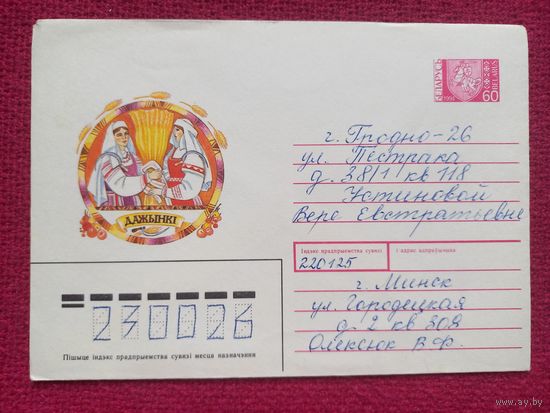 БЕЛАРУСЬ
1993
60
BELARUS
г. Гродно-26
ул. Пестрака
д. 38/1 кв 118
Устиновой
Вере Евстратьевне
ДАЖЫНКІ
Індэкс прадпрыемства сувязі і адрас адпраўшчыка
220125
г. Минск
ул. Городецкая
д. 2 кв 808
Олексюк В Ф.
230026
Пішыце індэкс прадпрыемства сувязі месца назначэння
www.ay.by